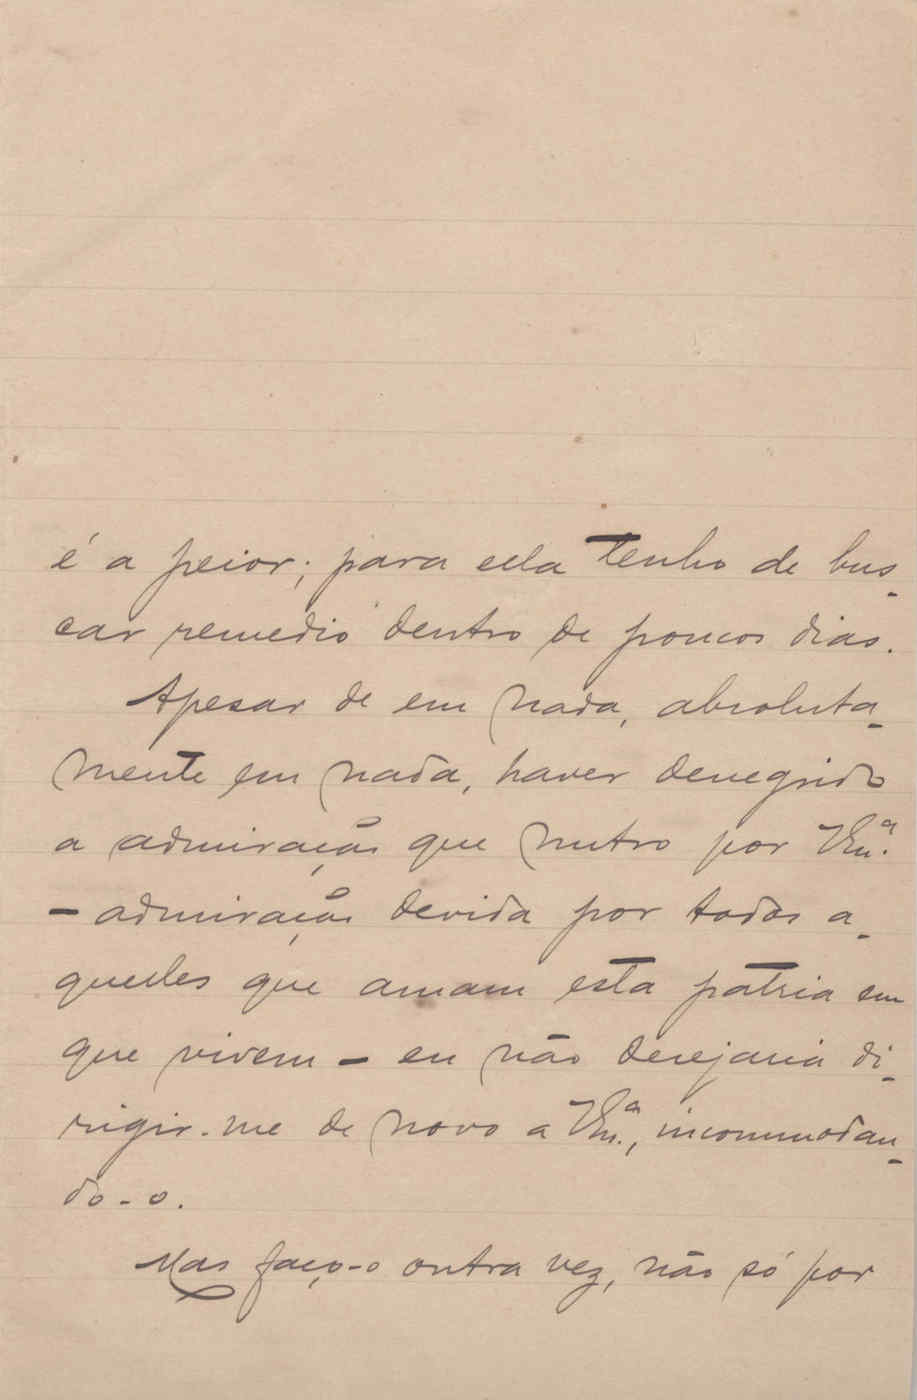 é a peior; para ella tenho de bus-
car remedio dentro de poucos dias.
Apesar de em nada, absoluta-
mente em nada, haver denegrido
a admiração que nutro por VEx.ª
– admiração devida por todos a-
quelles que amam esta patria em
que vivem – eu não desejaria di-
rigir-me de novo a VEx.ª, incommodan-
do-o.
Mas faço-o outra vez, não só por